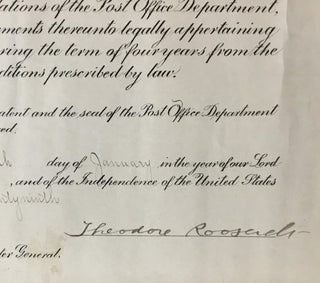 ations of the Post Office Department,
ments thereunto legally appertaining
ring the term of four years from the
ditions prescribed by law.
atent and the seal of the Post Office Department
ed.
th day of January in the year of our Lord
, and of the Independence of the United States
ty ninth
Theodore Roosevelt
ter General.